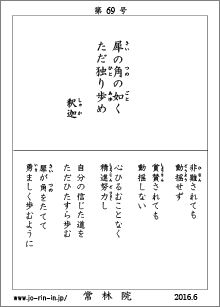 第 69 号
犀の角の如く
ただ独り歩め
釈迦
非難されても
動揺せず
賞賛されても
動揺しない
心ひるむことなく
精進努力し
自分の信じた道を
ただひたすら歩む
犀が角をたてて
勇ましく歩むように
www.jo-rin-in.jp/ 常林院 2016.6